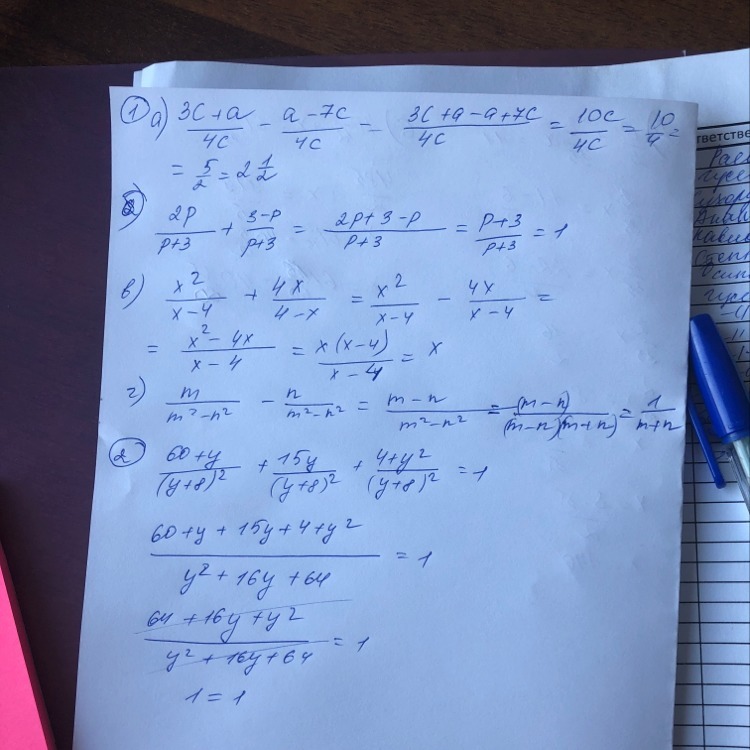 ① а) (3c+a)/4c - (a-7c)/4c = (3c+a-a+7c)/4c = 10c/4c = 10/4 =
= 5/2 = 2 1/2
2p/(p+3) + (3-p)/(p+3) = (2p+3-p)/(p+3) = (p+3)/(p+3) = 1
в) x²/(x-4) + 4x/(4-x) = x²/(x-4) - 4x/(x-4) =
= (x²-4x)/(x-4) = x(x-4)/(x-4) = x
г) m/(m²-n²) - n/(m²-n²) = (m-n)/(m²-n²) = (m-n)/(m-n)(m+n) = 1/(m+n)
② (60+y)/(y+8)² + 15y/(y+8)² + (4+y²)/(y+8)² = 1
(60+y+15y+4+y²)/(y²+16y+64) = 1
(64+16y+y²)/(y²+16y+64) = 1
1 = 1